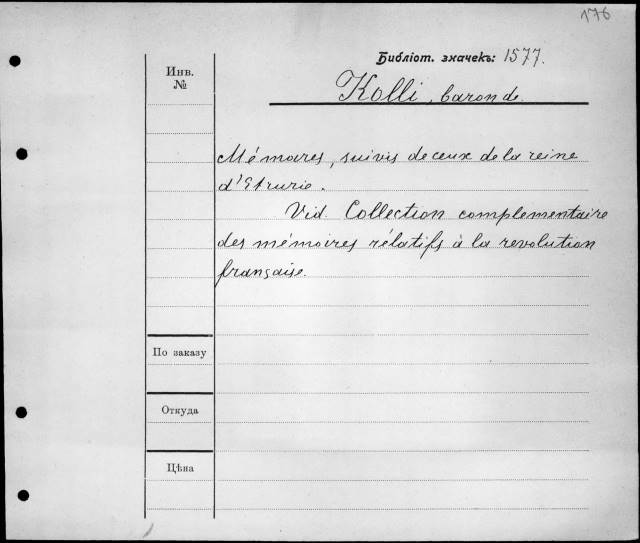 176
Библіот. значекъ: 1577.
Инв.
№
Kolli, baron de.
Mémoires, suivis de ceux de la reine
d'Etrurie.
Vid. Collection complementaire
des mémoires rélatifs à la revolution
française.
По заказу
Откуда
Цѣна